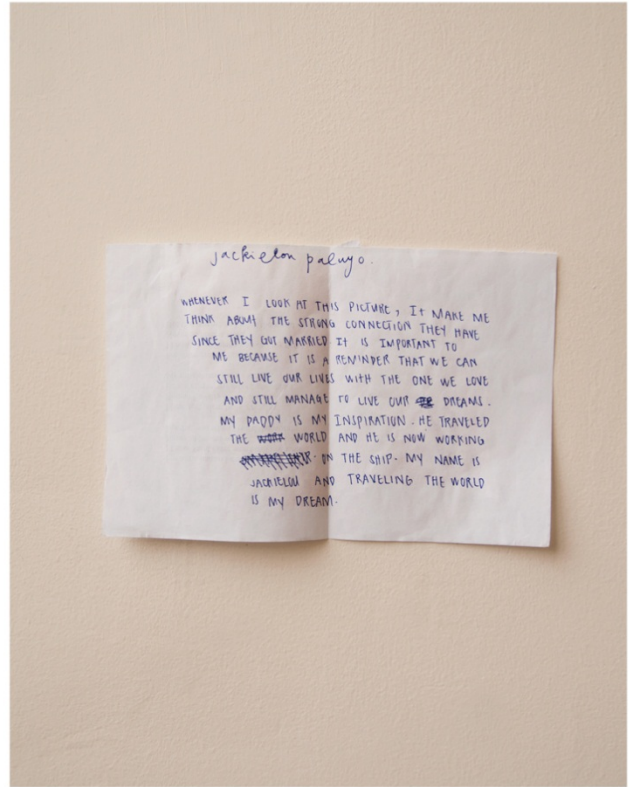 jackielou paluyo.
WHENEVER I LOOK AT THIS PICTURE, IT MAKE ME
THINK ABOUT THE STRONG CONNECTION THEY HAVE
SINCE THEY GOT MARRIED IT IS IMPORTANT TO
ME BECAUSE IT IS A REMINDER THAT WE CAN
STILL LIVE OUR LIVES WITH THE ONE WE LOVE
AND STILL MANAGE TO LIVE OUR DREAMS.
MY DADDY IS MY INSPIRATION. HE TRAVELED
THE WORLD AND HE IS NOW WORKING
ON THE SHIP. MY NAME IS
JACKIELOU AND TRAVELING THE WORLD
IS MY DREAM.